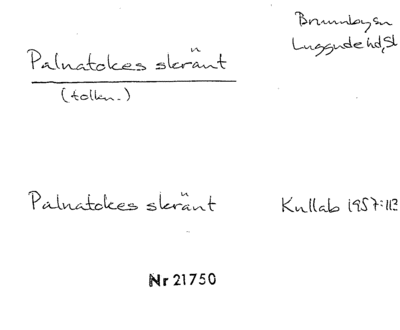 Brunnby sn
Luggude hd, Sk
Palnatokes skränt
(tolkn.)
Palnatokes skränt
Kullab 1957:113
Nr 21750